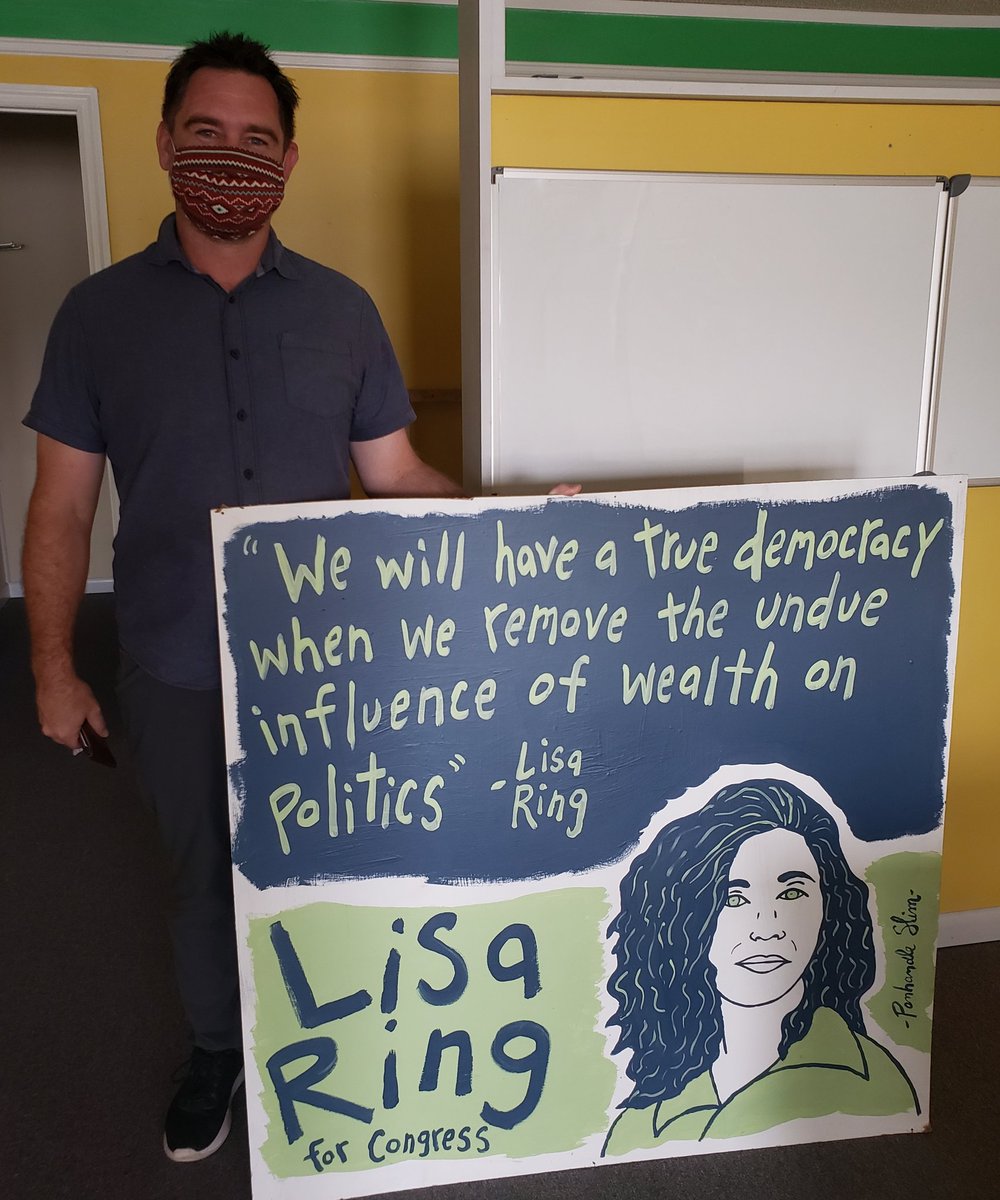 "We will have a true democracy
when we remove the undue
influence of wealth on
Politics" - Lisa
Ring
Lisa
Ring
for Congress
-Panhandle Slim-